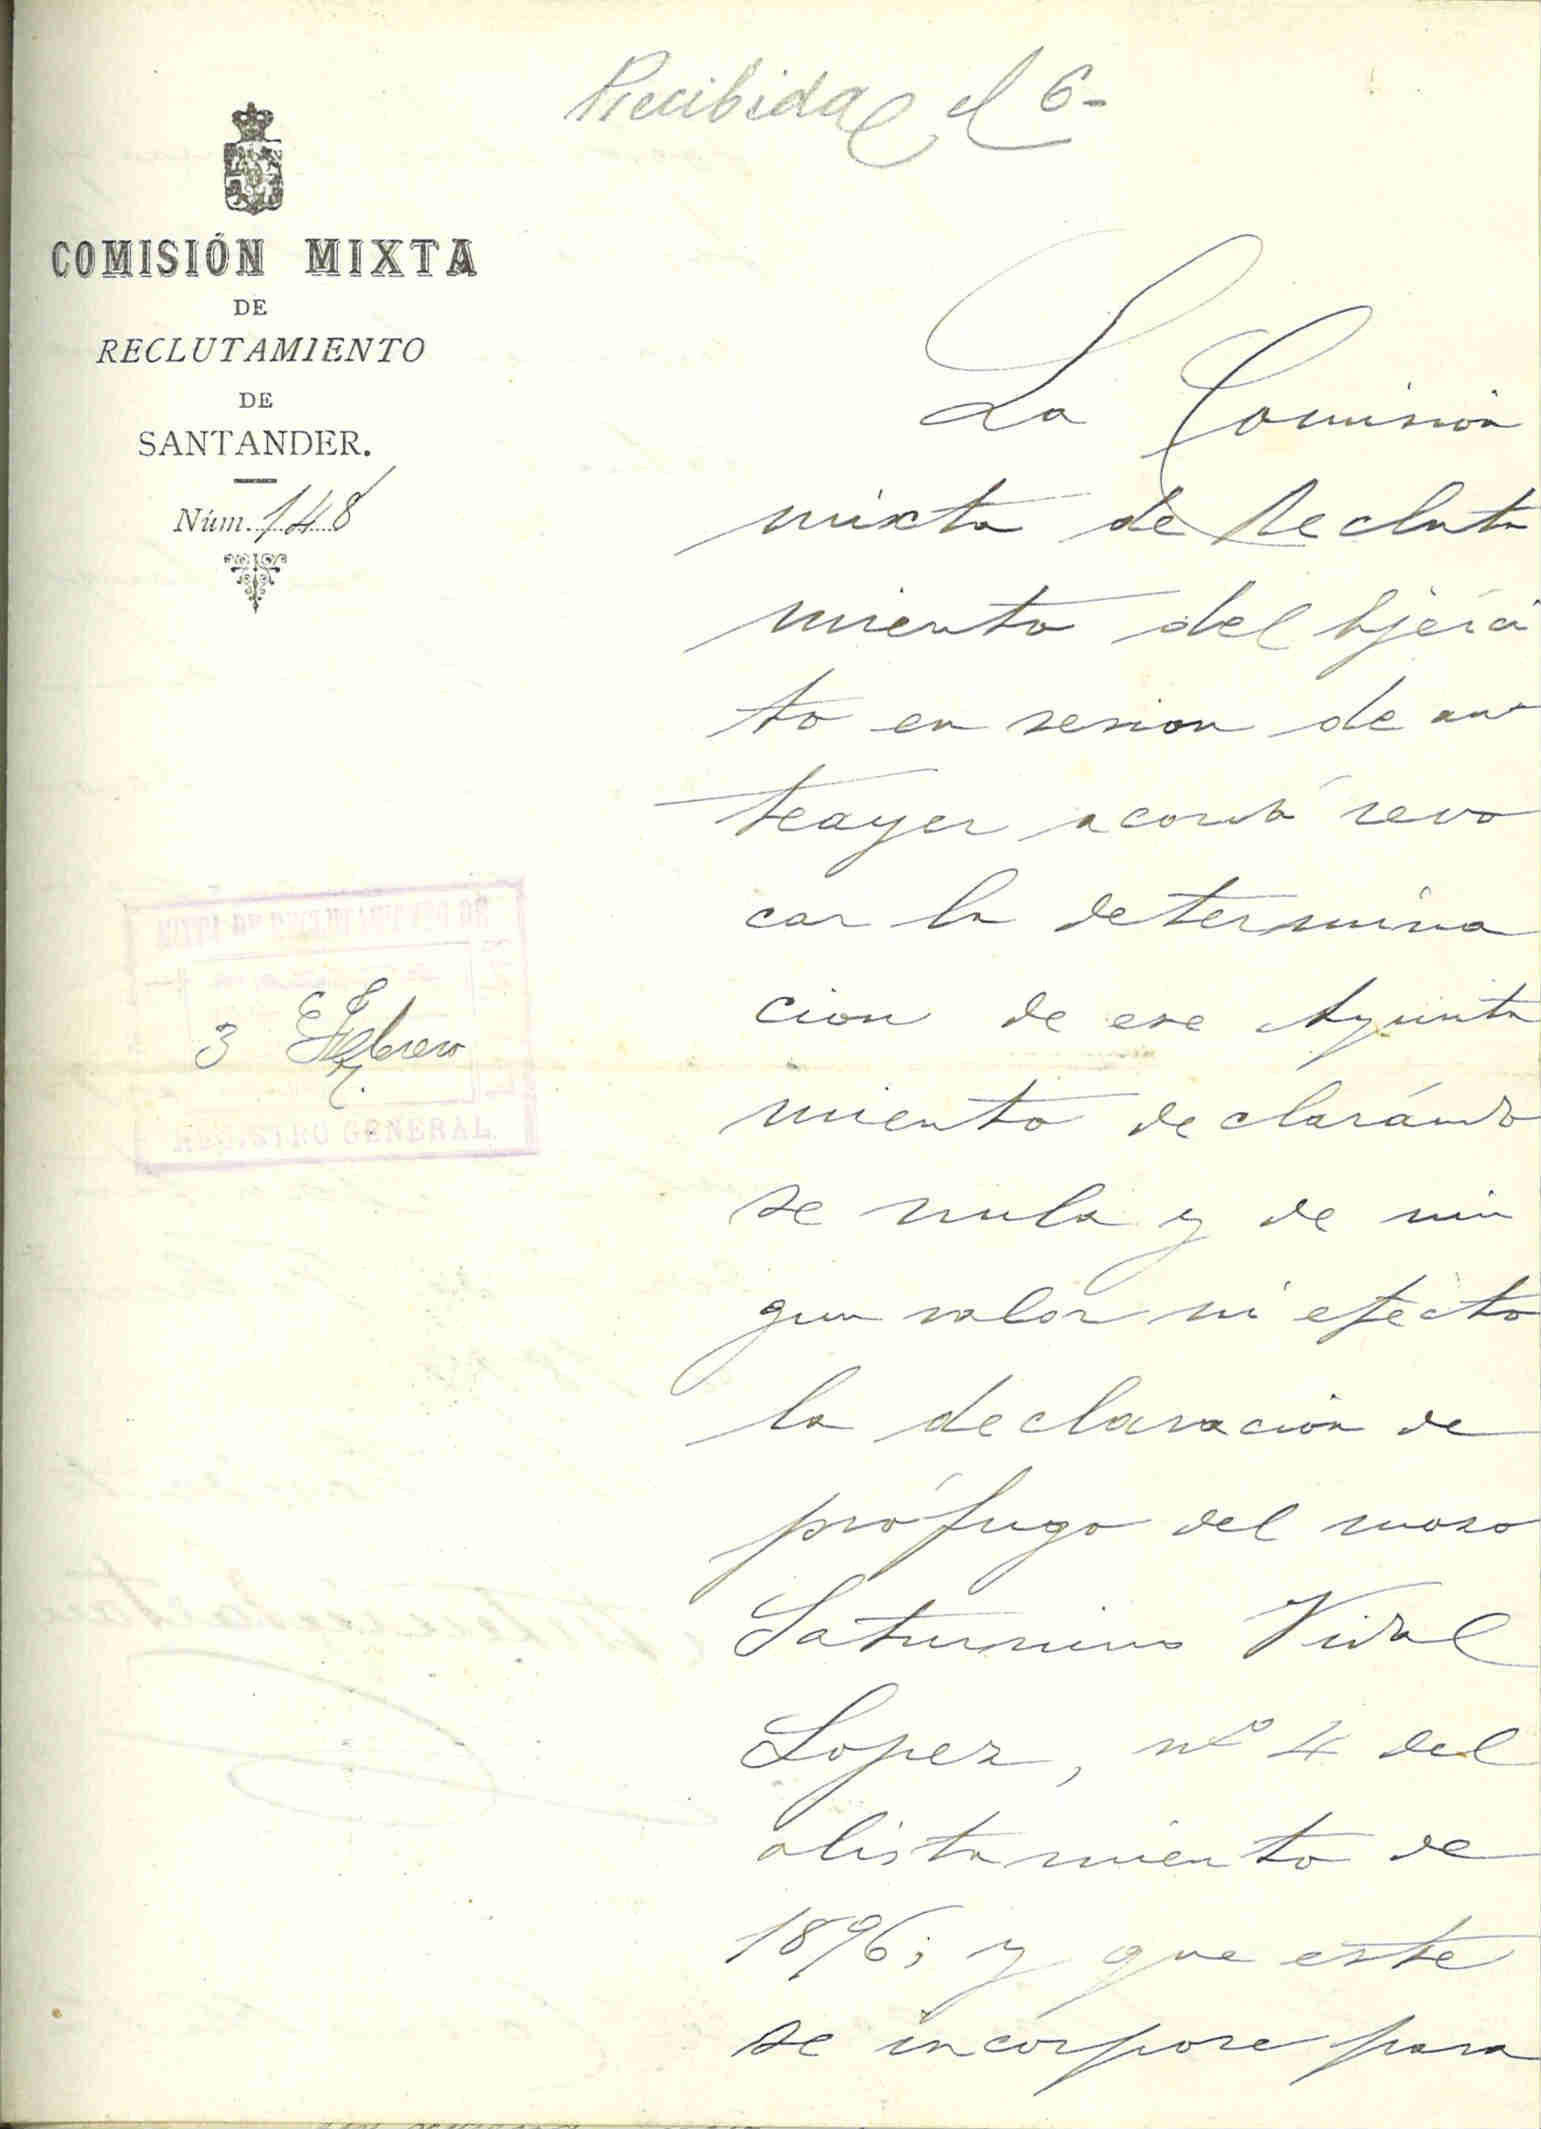 Recibida el 6-
COMISIÓN MIXTA
DE
RECLUTAMIENTO
DE
SANTANDER.
Núm. 148
La Comisión
mixta de Recluta
miento del Ejérci
to en sesion de an
teayer acordó revo
car la determina
cion de ese Ayunta
miento declarándo
se nula y de nin
gun valor ni efecto
la declaración de
prófugo del mozo
Saturnino Vidal
Lopez, nº 4 del
alistamiento de
1896; y que este
se incorpore para
3 Febrero
REGISTRO GENERAL